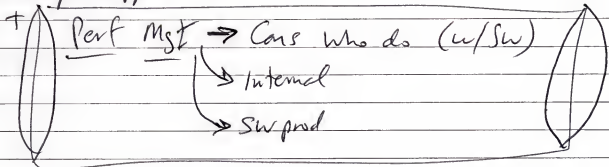 + Perf Mgt → Cons who do (w/SW)
→ Internal
→ SW prod